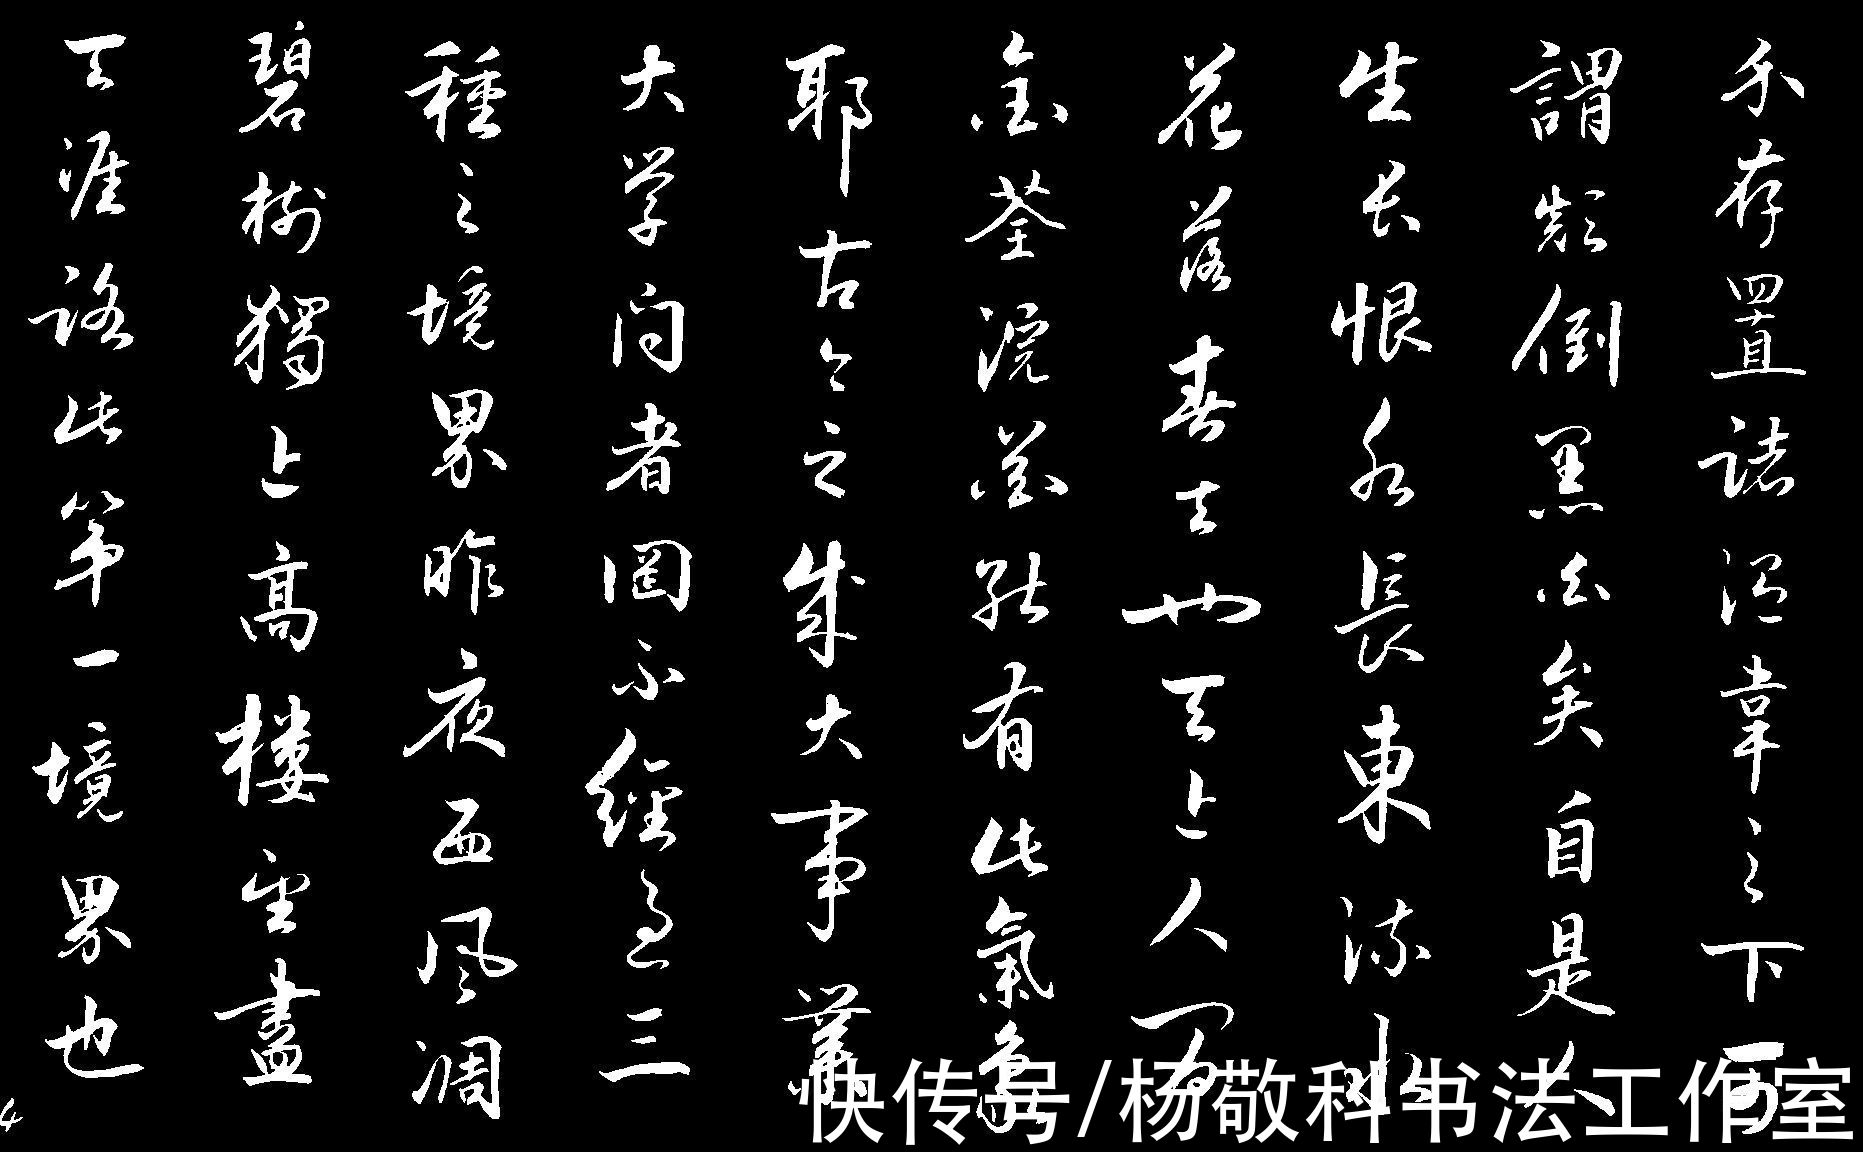 介存置諸温韋之下可
謂顛倒黑白矣自是人
生长恨水長東流水
花落春去也天上人间
金荃浣花能有此氣象
耶古今之成大事業
大学问者罔不經過三
種之境界昨夜西風凋
碧樹獨上高楼望盡
天涯路此第一境界也
4
快传号/杨敬科书法工作室